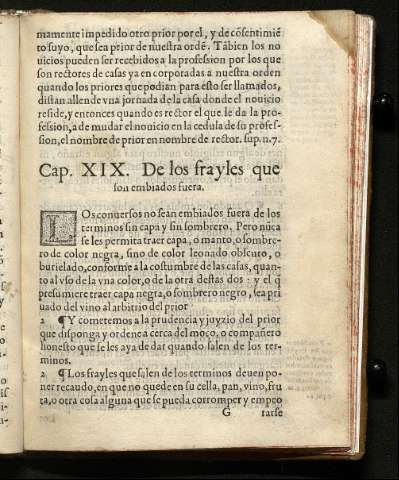 mamente impedido otro prior por el, y de cõsentimiẽ
to suyo, que sea prior de nuestra ordẽ. Tãbien los no
uicios pueden ser recebidos a la profession por los que
son rectores de casas ya encorporadas a nuestra orden
quando los priores que podian para esto ser llamados,
distan allende vna jornada de la casa donde el nouicio
reside, y entonces quando es rector el que le da la pro-
fession, a de mudar el nouicio en la cedula de su profes-
sion, el nombre de prior en nombre de rector. sup. n. 7.
Cap. XIX. De los frayles que
son embiados fuera.
LOs conuersos no sean embiados fuera de los
terminos sin capa y sin sombrero. Pero nũca
se les permita traer capa, o manto, o sombre-
ro de color negra, sino de color leonado obscuro, o
burielado, conforme a la costumbre de las casas, quan-
to al vso de la vna color, o de la otra destas dos: y el q̃
presumiere traer capa negra, o sombrero negro, sea pri
uado del vino al arbitrio del prior
2 ¶ Y cometemos a la prudencia y juyzio del prior
que disponga y ordene a cerca del moço, o compañero
honesto que se les aya de dar quando salen de los ter-
minos.
2. ¶ Los frayles que salen de los terminos deuen po-
ner recaudo, en que no quede en su cella, pan, vino, fru
ta, o otra cosa alguna que se pueda corromper y empeo
G rarse